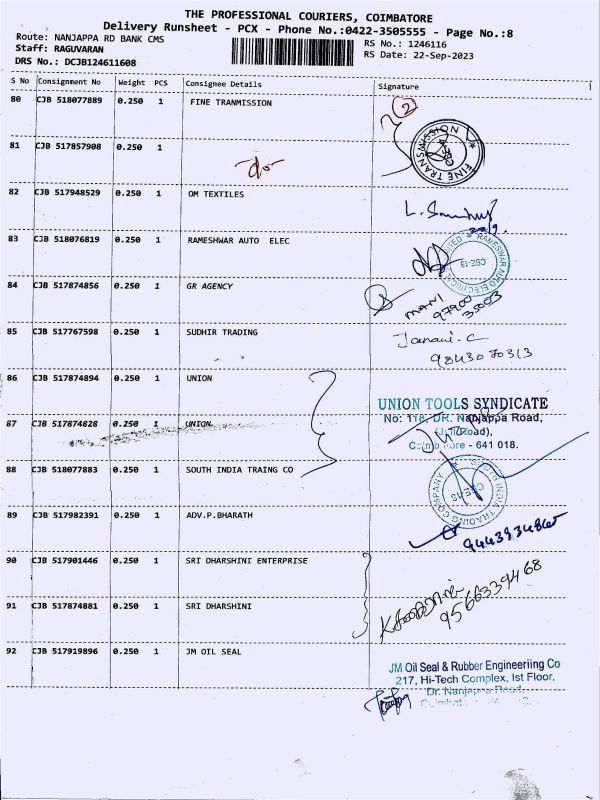 THE PROFESSIONAL COURIERS, COIMBATORE
Delivery Runsheet - PCX - Phone No.:0422-3505555 - Page No.:8
Route: NANJAPPA RD BANK CMS
RS No.: 1246116
Staff: RAGUVARAN
RS Date: 22-Sep-2023
DRS No.: DCJB124611608
S No Consignment No Weight PCS Consignee Details Signature
80 CJB 518077889 0.250 1 FINE TRANMISSION
2
FINE TRANSMISSION
81 CJB 517857908 0.250 1
do
82 CJB 517948529 0.250 1 OM TEXTILES
22/9.
83 CJB 518076819 0.250 1 RAMESHWAR AUTO ELEC
RAMESHWAR AUTO ELECTRICAL LIMITED
CBE-18
84 CJB 517874856 0.250 1 GR AGENCY
MANI
97900
35003
85 CJB 517767598 0.250 1 SUDHIR TRADING
Janani. C
9843070313
86 CJB 517874894 0.250 1 UNION
UNION TOOLS SYNDICATE
No: 118, DR. Nanjappa Road,
87 CJB 517874828 0.250 1 UNION
(Jail Road),
Coimbatore - 641 018.
88 CJB 518077883 0.250 1 SOUTH INDIA TRAING CO
SOUTH INDIA TRADING COMPANY
CBE-18
89 CJB 517982391 0.250 1 ADV.P.BHARATH
9443934845
90 CJB 517901446 0.250 1 SRI DHARSHINI ENTERPRISE
9566339468
91 CJB 517874881 0.250 1 SRI DHARSHINI
92 CJB 517919896 0.250 1 JM OIL SEAL
JM Oil Seal & Rubber Engineeriing Co
217, Hi-Tech Complex, Ist Floor,
Dr. Nanjappa Road,